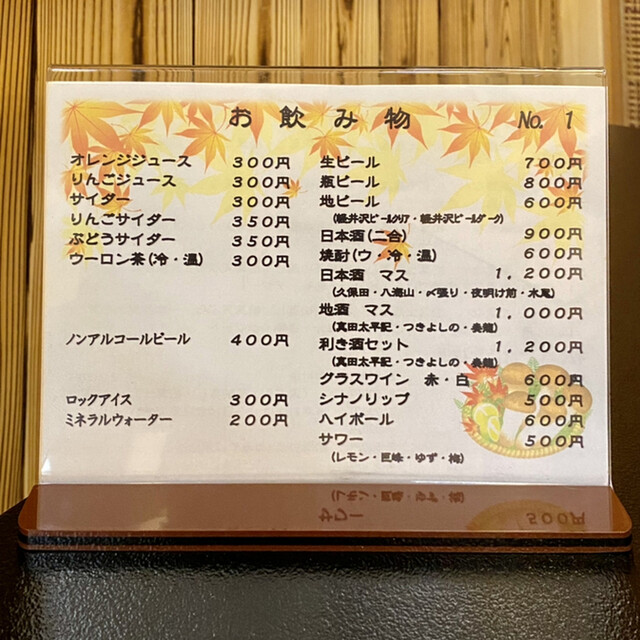 お飲み物 No. 1
オレンジジュース 300円
りんごジュース 300円
サイダー 300円
りんごサイダー 350円
ぶどうサイダー 350円
ウーロン茶(冷・温) 300円
ノンアルコールビール 400円
ロックアイス 300円
ミネラルウォーター 200円
生ビール 700円
瓶ビール 800円
地ビール 600円
(軽井沢ビールクリア・軽井沢ビールダーク)
日本酒(二合) 900円
焼酎(ウ・冷・温) 600円
日本酒 マス 1,200円
(久保田・八海山・〆張り・夜明け前・水尾)
地酒 マス 1,000円
(真田太平記・つきよしの・喜龍)
利き酒セット 1,200円
(真田太平記・つきよしの・喜龍)
グラスワイン 赤・白 600円
シナノリップ 500円
ハイボール 600円
サワー 500円
(レモン・巨峰・ゆず・梅)